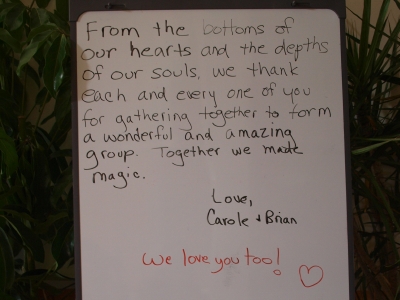 From the bottoms of
our hearts and the depths
of our souls, we thank
each and every one of you
for gathering together to form
a wonderful and amazing
group. Together we made
magic.
Love,
Carole + Brian
We love you too!